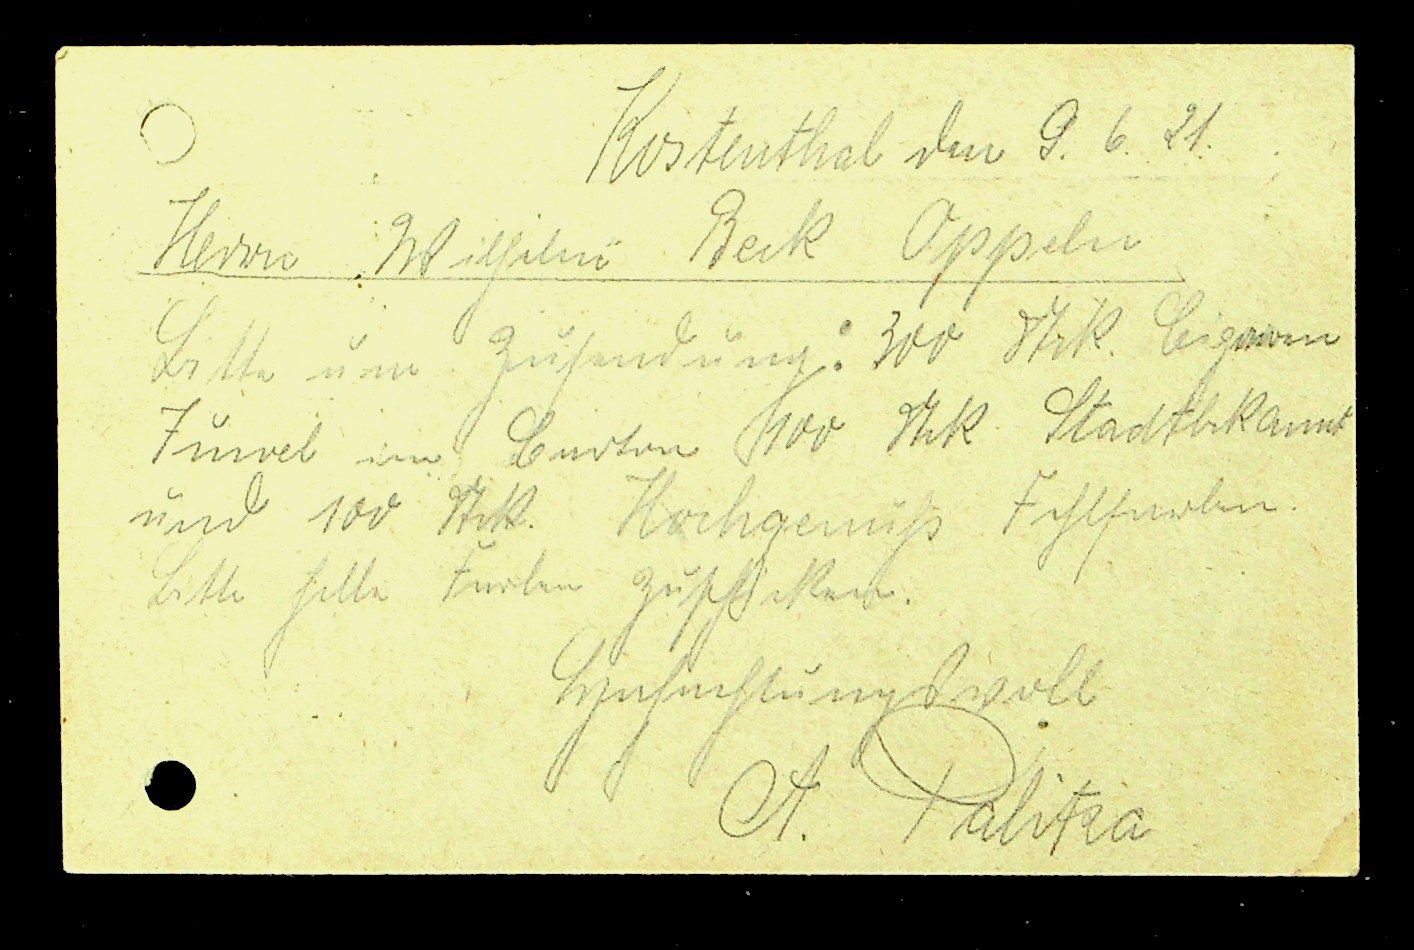 Kostenthal den 9. 6. 21.
Herrn Wilhelm Beck Oppeln
Bitte um Zusendung: 300 Stck. Cigarren
Juwel im Carton 100 Stck Stadtbekannt
und 100 Stck. Hochgenuß Fehlfarben.
Bitte helle Farben zuschicken.
Hochachtungsvoll
A. Palitza